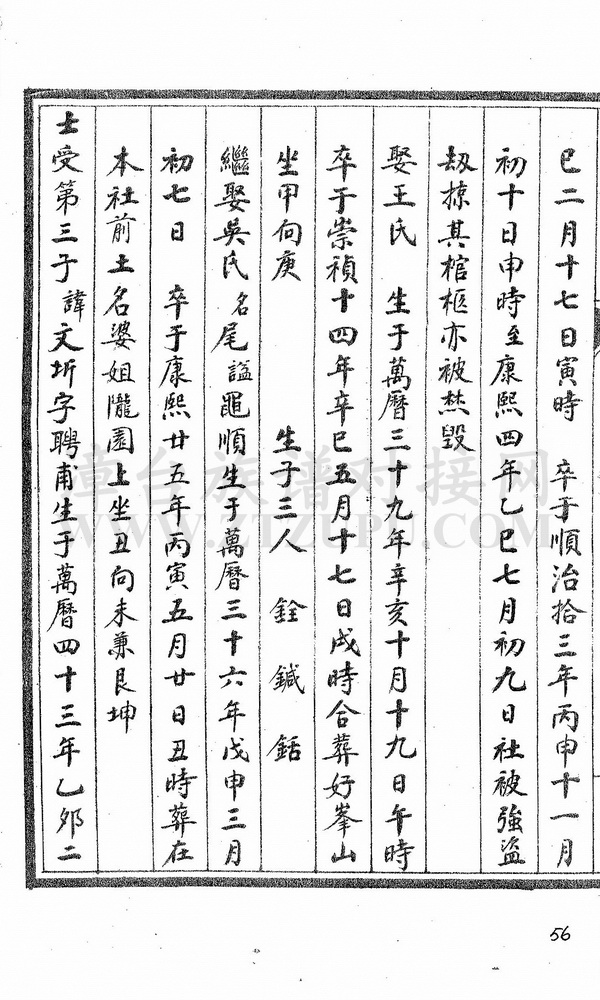 巳二月十七日寅時　卒于順治拾三年丙申十一月
初十日申時至康熙四年乙巳七月初九日社被強盜
刼掠其棺柩亦被焚毀
娶王氏　生于萬曆三十九年辛亥十月十九日午時
卒于崇禎十四年辛巳五月十七日戌時合葬好峯山
坐甲向庚　生子三人　銓　鍼　銛
繼娶吳氏名尾謚黽順生于萬曆三十六年戊申三月
初七日　卒于康熙廿五年丙寅五月廿日丑時葬在
本社前土名婆姐隴園上坐丑向未兼艮坤
士受第三子　諱文圻字聘甫生于萬曆四十三年乙夘二
56
漳台族谱对接网
WWW.ZTZUPU.COM